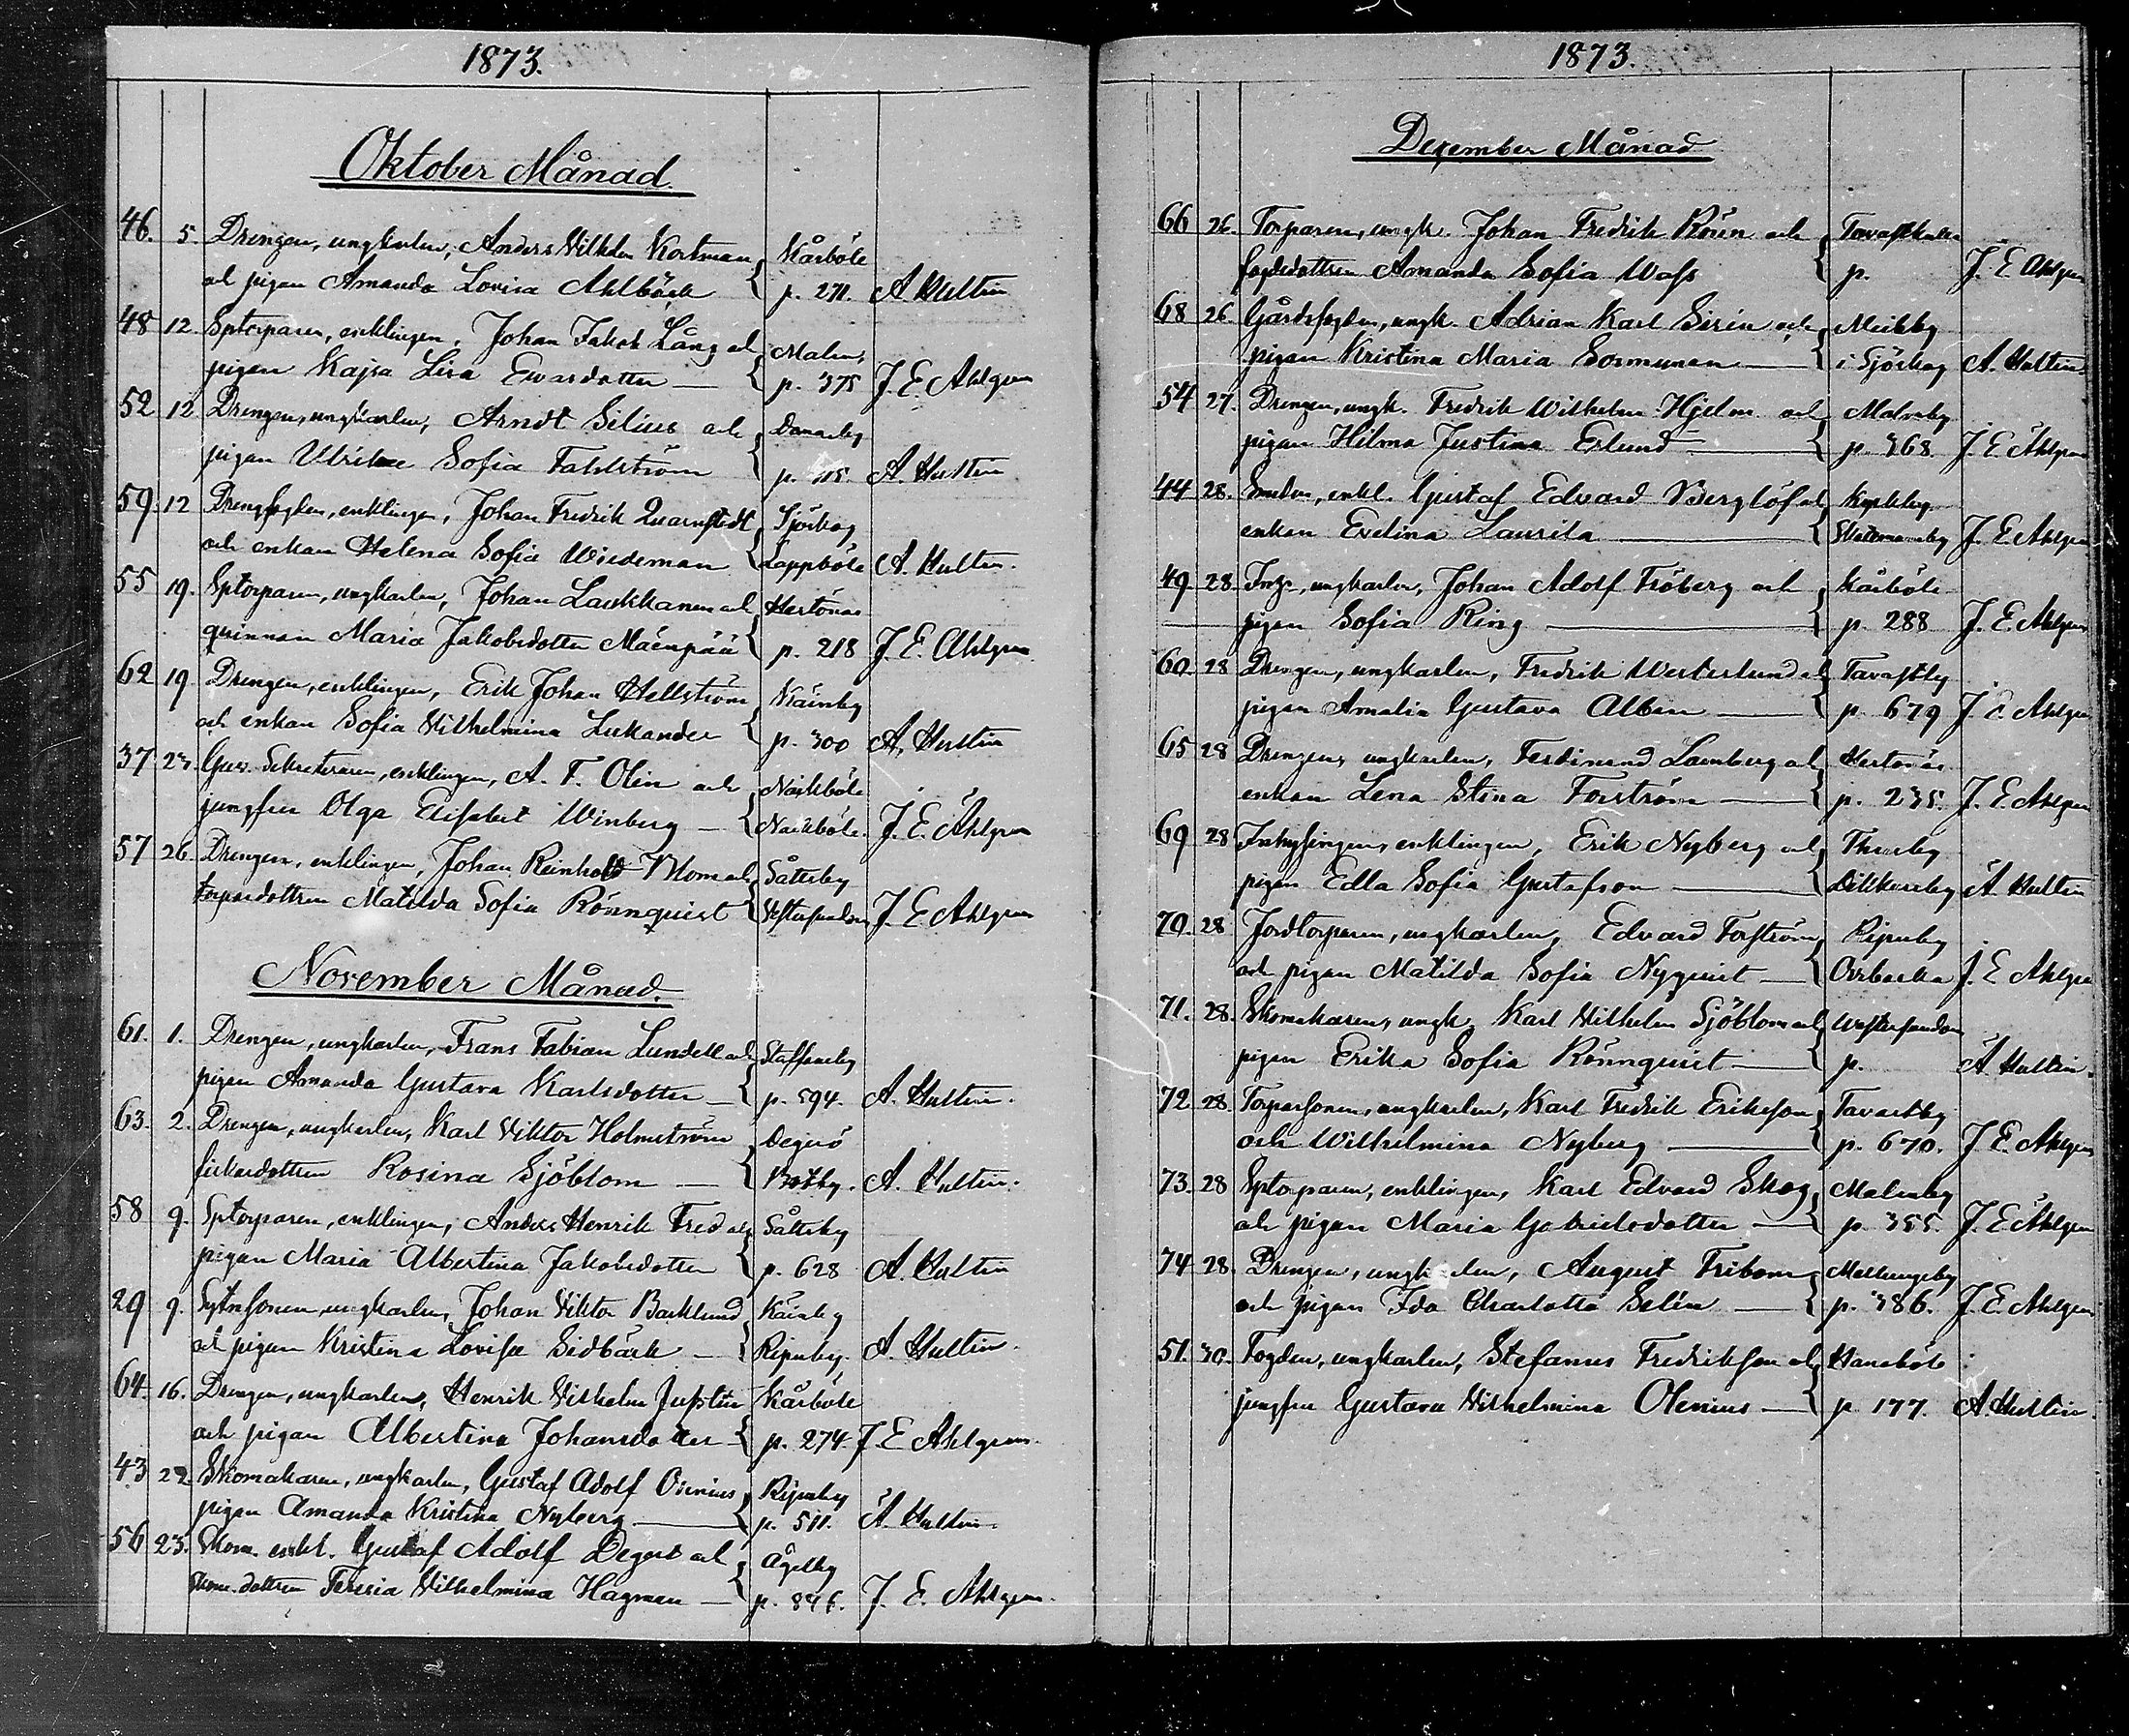 1873.
Oktober Månad.
46. 5. Drengen, ungkarlen, Anders Vilhelm Kortman Kårböle
och pigan Amanda Lovisa Ahlbäck p. 271. A Hultin
48 12. Sptorparen, enklingen, Johan Jakob Lång och Malm,
pigan Kajsa Lisa Evasdotter — p. 375 J. E. Ahlgren
52 12 Drengen, ungkarlen, Arndt Silius och Domarby
pigan Ulrika Sofia Fahlström p. A. Hultin
59. 12 Drengfogden, enklingen, Johan Fredrik Quarnstedt Sjöskog
och enkan Helena Sofia Wiedeman Lappböle A. Hultin.
55 19. Sptorparen, ungkarlen, Johan Laukkanen och Hertonäs
quinnan Maria Jakobsdotter Mäenpää p. 218 J. E. Ahlgren
62 19. Drengen, enklingen, Erik Johan Hellström
och enkan Sofia Vilhelmina Lukander p. 300 A. Hultin
37 23. Guv. Sekreteraren, enklingen, A. F. Olin och Nackböle
jungfru Olga Elisabet Winberg — Nackböle. J. E. Ahlgren
57 26. Drengen, enklingen, Johan Reinhold Blom och Såttsby
torparedottren Matilda Sofia Rönnquist Vestersundom J. E. Ahlgren
November Månad.
61. 1. Drengen, ungkarlen, Frans Fabian Lundell och Staffansby
pigan Amanda Gustava Karlsdotter — p. 594. A. Hultin.
63. 2. Drengen, ungkarlen, Karl Viktor Holmström Degerö
fiskardottren Rosina Sjöblom — Botby. A. Hultin.
58 9. Sptorparen, enklingen, Anders Henrik Fred och Såttsby
pigan Maria Albertina Jakobsdotter p. 628 A. Hultin
29 9. Sytnssonen, ungkarlen, Johan Viktor Backlund
och pigan Kristina Lovisa Sidbäck — Ripuby. A. Hultin.
64. 16. Drengen, ungkarlen, Henrik Vilhelm Justin Kårböle
och pigan Albertina Johansdotter p. 274. J. E Ahlgren.
43 22. Skomakaren, ungkarlen, Gustaf Adolf Ripuby
pigan Amanda Kristina Nyberg — p. 511. A. Hultin.
56 23. Skom. enkl. Gustaf Adolf Degert och Ågelby
skom.dottren Teresia Vilhelmina Hagman — p. 846. J. E. Ahlgren.
1873.
Dezember Månad
66 26. Torparen, ungk. Johan Fredrik Rosén och
fogdedottren Amanda Sofia Wass p. J. E Ahlgren
68 26. Gårdsfogden, ungk. Adrian Karl Sirén och Meibby
pigan Kristina Maria Sormunen — i Sjöskog A. Hultin.
54 27. Drengen, ungk. Fredrik Wilhelm Hjelm och Malmby
pigan Hilma Justina Erlund — p. 368. J. E Ahlgren
44 28. Smeden, enkl. Gustaf Edvard Berglöf och
enkan Evelina Laurila — Skattmansby J. E. Ahlgren
49. 28. Inhs., ungkarlen, Johan Adolf Fröberg och Kårböle
pigan Sofia Ring — p. 288 J. E. Ahlgren
60. 28 Drengen, ungkarlen, Fredrik Westerlund och Tavastby
pigan Amalia Gustava Albin — p. 679 J. E. Ahlgren
65 28 Drengen, ungkarlen, Ferdinand Lamberg och Hertonäs
enkan Lena Stina Forström — p. 235. J. E Ahlgren
69 28 Inhysingen, enklingen, Erik Nyberg och Thusby
pigan Edla Sofia Gustafson — Dikkursby A Hultin
70. 28 Jordtorparen, ungkarlen, Edvard Forström Ripuby
och pigan Matilda Sofia Nyquist — Ovrbacka J. E Ahlgren
71. 28. Skomakaren, ungk, Karl Vilhelm Sjöblom och Westersundom
pigan Erika Sofia Rönnquist — p. A. Hultin.
72 28. Torparsonen, ungkarlen, Karl Fredrik Erikson Tavastby
och Wilhelmina Nyberg — p. 670. J. E. Ahlgren
73. 28 Sptorparen, enklingen, Karl Edvard Skog Malmby
och pigan Maria Gabrielsdotter — p. 355. J. E Ahlgren
74 28. Drengen, ungkarlen, August Fribom Mellungsby
och pigan Ida Charlotta Selin — p. 386. J. E. Ahlgren
51. 30. Fogden, ungkarlen, Stefanus Fredrikson och Hanaböle
jungfru Gustava Wilhelmina Olenius — p. 177. A. Hultin.